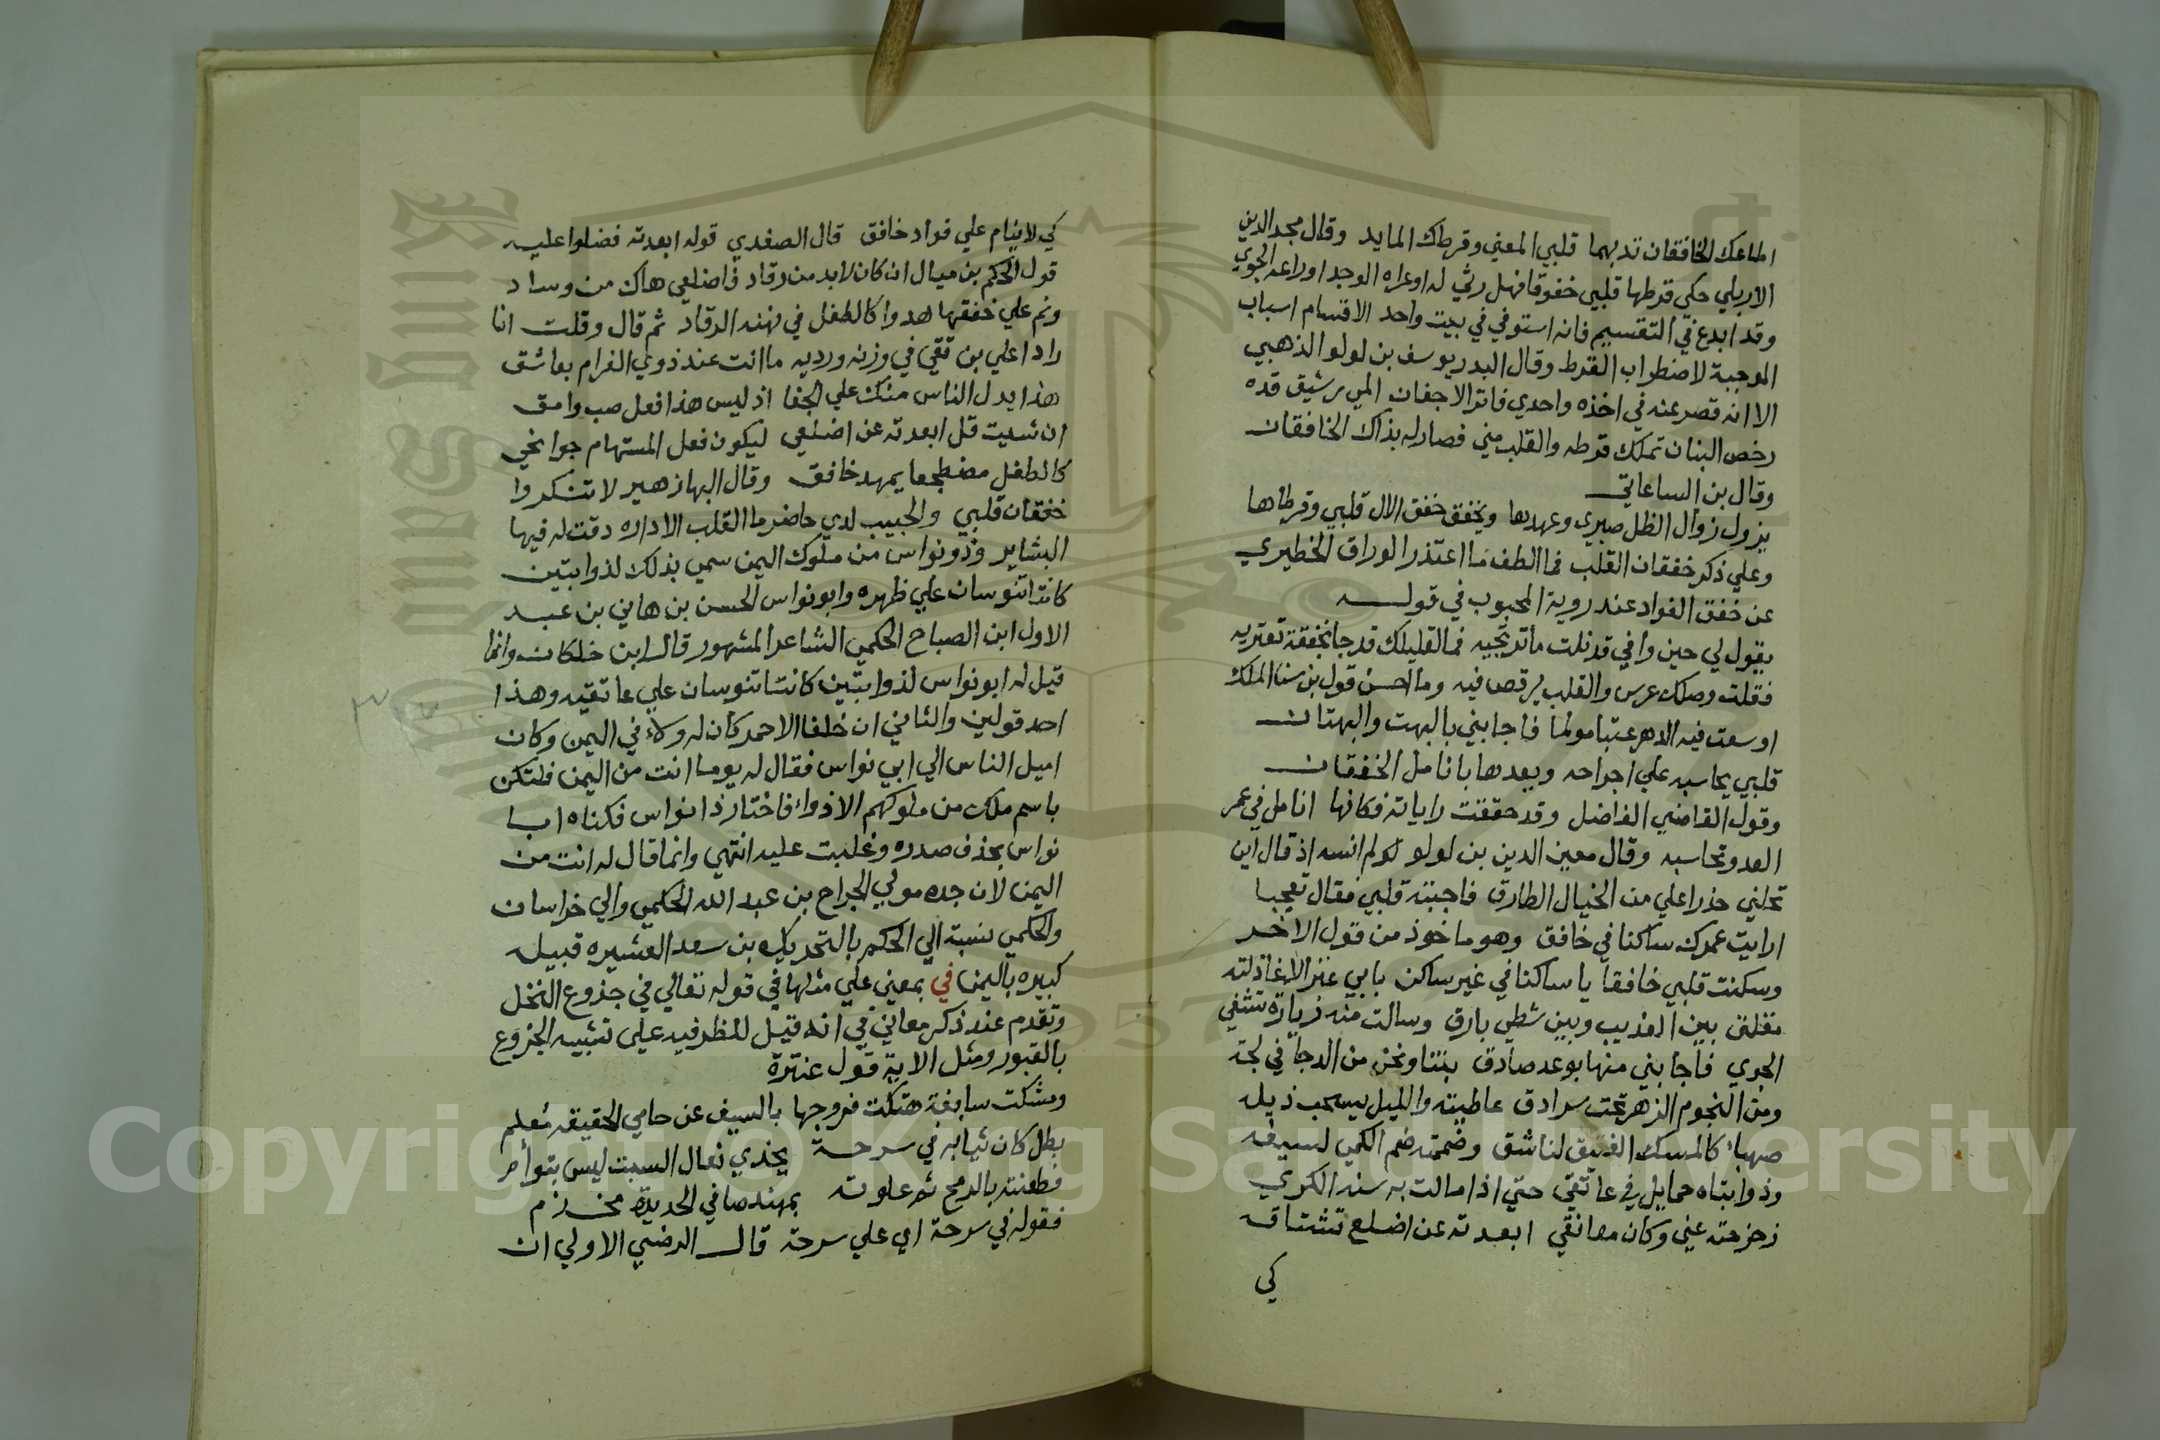 املاعك الخافقان تدبهما قلبي المعني وقرطاك المايد وقال مجد الدين
الاربلي حكي قرطها قلبي خفوقا فهل رثي له او عراه الوجد او راعه الجوي
وقد ابدع في التقسيم فانه استوفي في بيت واحد الاقسام اسباب
الموجبة لاضطراب القرط وقال البدر يوسف بن لولو الذهبي
الا انه قصر عنه في اخذه واحدي فاتر الاجفان المي رشيق قده
رخص البنان تملك قرطه والقلب مني فصار له بذاك الخافقان
وقال بن الساعاتي
يزول زوال الظل صبري وعهدها ويخفق خفق الال قلبي وقرطاها
وعلي ذكر خفقان القلب فما الطف ما اعتذر الوراق الخطيري
عن خفق الفواد عند روية المحبوب في قوله
يقول لي حين وافي قد نلت ما ترتجيه فما لقلبك قد جا بخفقة تعتريه
فقلت وصلك عرس والقلب يرقص فيه وما احسن قول بن سنا الملك
اوسعت فيه الدهر عتبا مولما فاجابني بالبهت والبهتان
قلبي يحاسبه علي اجرامه ويعدها بانامل الخفقان
وقول القاضي الفاضل وقد خفقت راياته فكانها انامل في عمر
العدو تحاسبه وقال معين الدين بن لولو لو لم انسه اذ قال اين
تحلني حذرا علي من الخيال الطارق فاجبته قلبي فقال تعجبا
ارايت عمرك ساكنا في خافق وهو ماخوذ من قول الاخر
وسكنت قلبي خافقا يا ساكنا في غير ساكن بابي غزالا غازلته
مقلتي بين العذيب وبين شطي بارق وسالت منه زيارة تشفي
الجوي فاجابني منها بوعد صادق بتنا ونحن من الدجا في لجة
ومن النجوم الزهر تحت سرادق عاطيته والليل يسحب ذيله
صهباء كالمسك الفتيق لناشق وضممته ضم الكمي لسيفه
وذوابتاه حمايل في عاتقي حتي اذا مالت به سنة الكري
زحزحته عني وكان معانقي ابعدته عن اضلع تشتاقه
كي
كي لا ينام علي فواد خافق قال الصفدي قوله ابعدته فضلوا عليه
قول الحكم بن عيال ان كان لابد من رقاد فاضلعي هاك من وساد
ونم علي خفقها هدوا كالطفل في نهنه الرقاد ثم قال وقلت انا
رادا علي بن تقي في وزنه ورديه ما انت عند ذوي الغرام بعاشق
هذا يدل الناس منك علي الجفا اذ ليس هذا فعل صب وامق
ان شيت قل ابعدته عن اضلعي ليكون فعل المستهام جوانحي
كالطفل مضطجعا بمهد خافق وقال البها زهير لا تنكروا
خفقان قلبي والحبيب لدي حاضر ما القلب الا داره دقت له فيها
البشاير وذو نواس من ملوك اليمن سمي بذلك لذوابتين
كانتا تنوسان علي ظهره وابو نواس الحسن بن هاني بن عبد
الاول ابن الصباح الحكمي الشاعر المشهور قال ابن خلكان وانما
قيل له ابو نواس لذوابتين كانتا تنوسان علي عاتقيه وهذا
احد قولين والثاني ان خلفا الاحمر كان له ولاء في اليمن وكان
اميل الناس الي ابي نواس فقال له يوما انت من اليمن فلتكن
باسم ملك من ملوكهم الاذواء فاختار ذا نواس فكناه ابا
نواس بحذف صدره وغلبت عليه انتهي وانما قال له انت من
اليمن لان جده مولي الجراح بن عبد الله الحكمي والي خراسان
والحكمي نسبة الي الحكم بالتحريك بن سعد العشيره قبيله
كبيره باليمن في بمعني علي مثلها في قوله تعالي في جذوع النخل
وتقدم عند ذكر معاني في انه قيل للظرفيه علي تشبيه الجزوع
بالقبور ومثل الاية قول عنترة
ومشكت سابغة هتكت فروجها بالسيف عن حامي الحقيقه معلم
بطل كان ثيابه في سرحة يحذي نعال السبت ليس بتوأم
فطعنته بالرمح ثم علوته بمهند صافي الحديدة مخذم
فقوله في سرحة اي علي سرحة قال الرضي الاولي ان
Copyright © King Saud University
1957